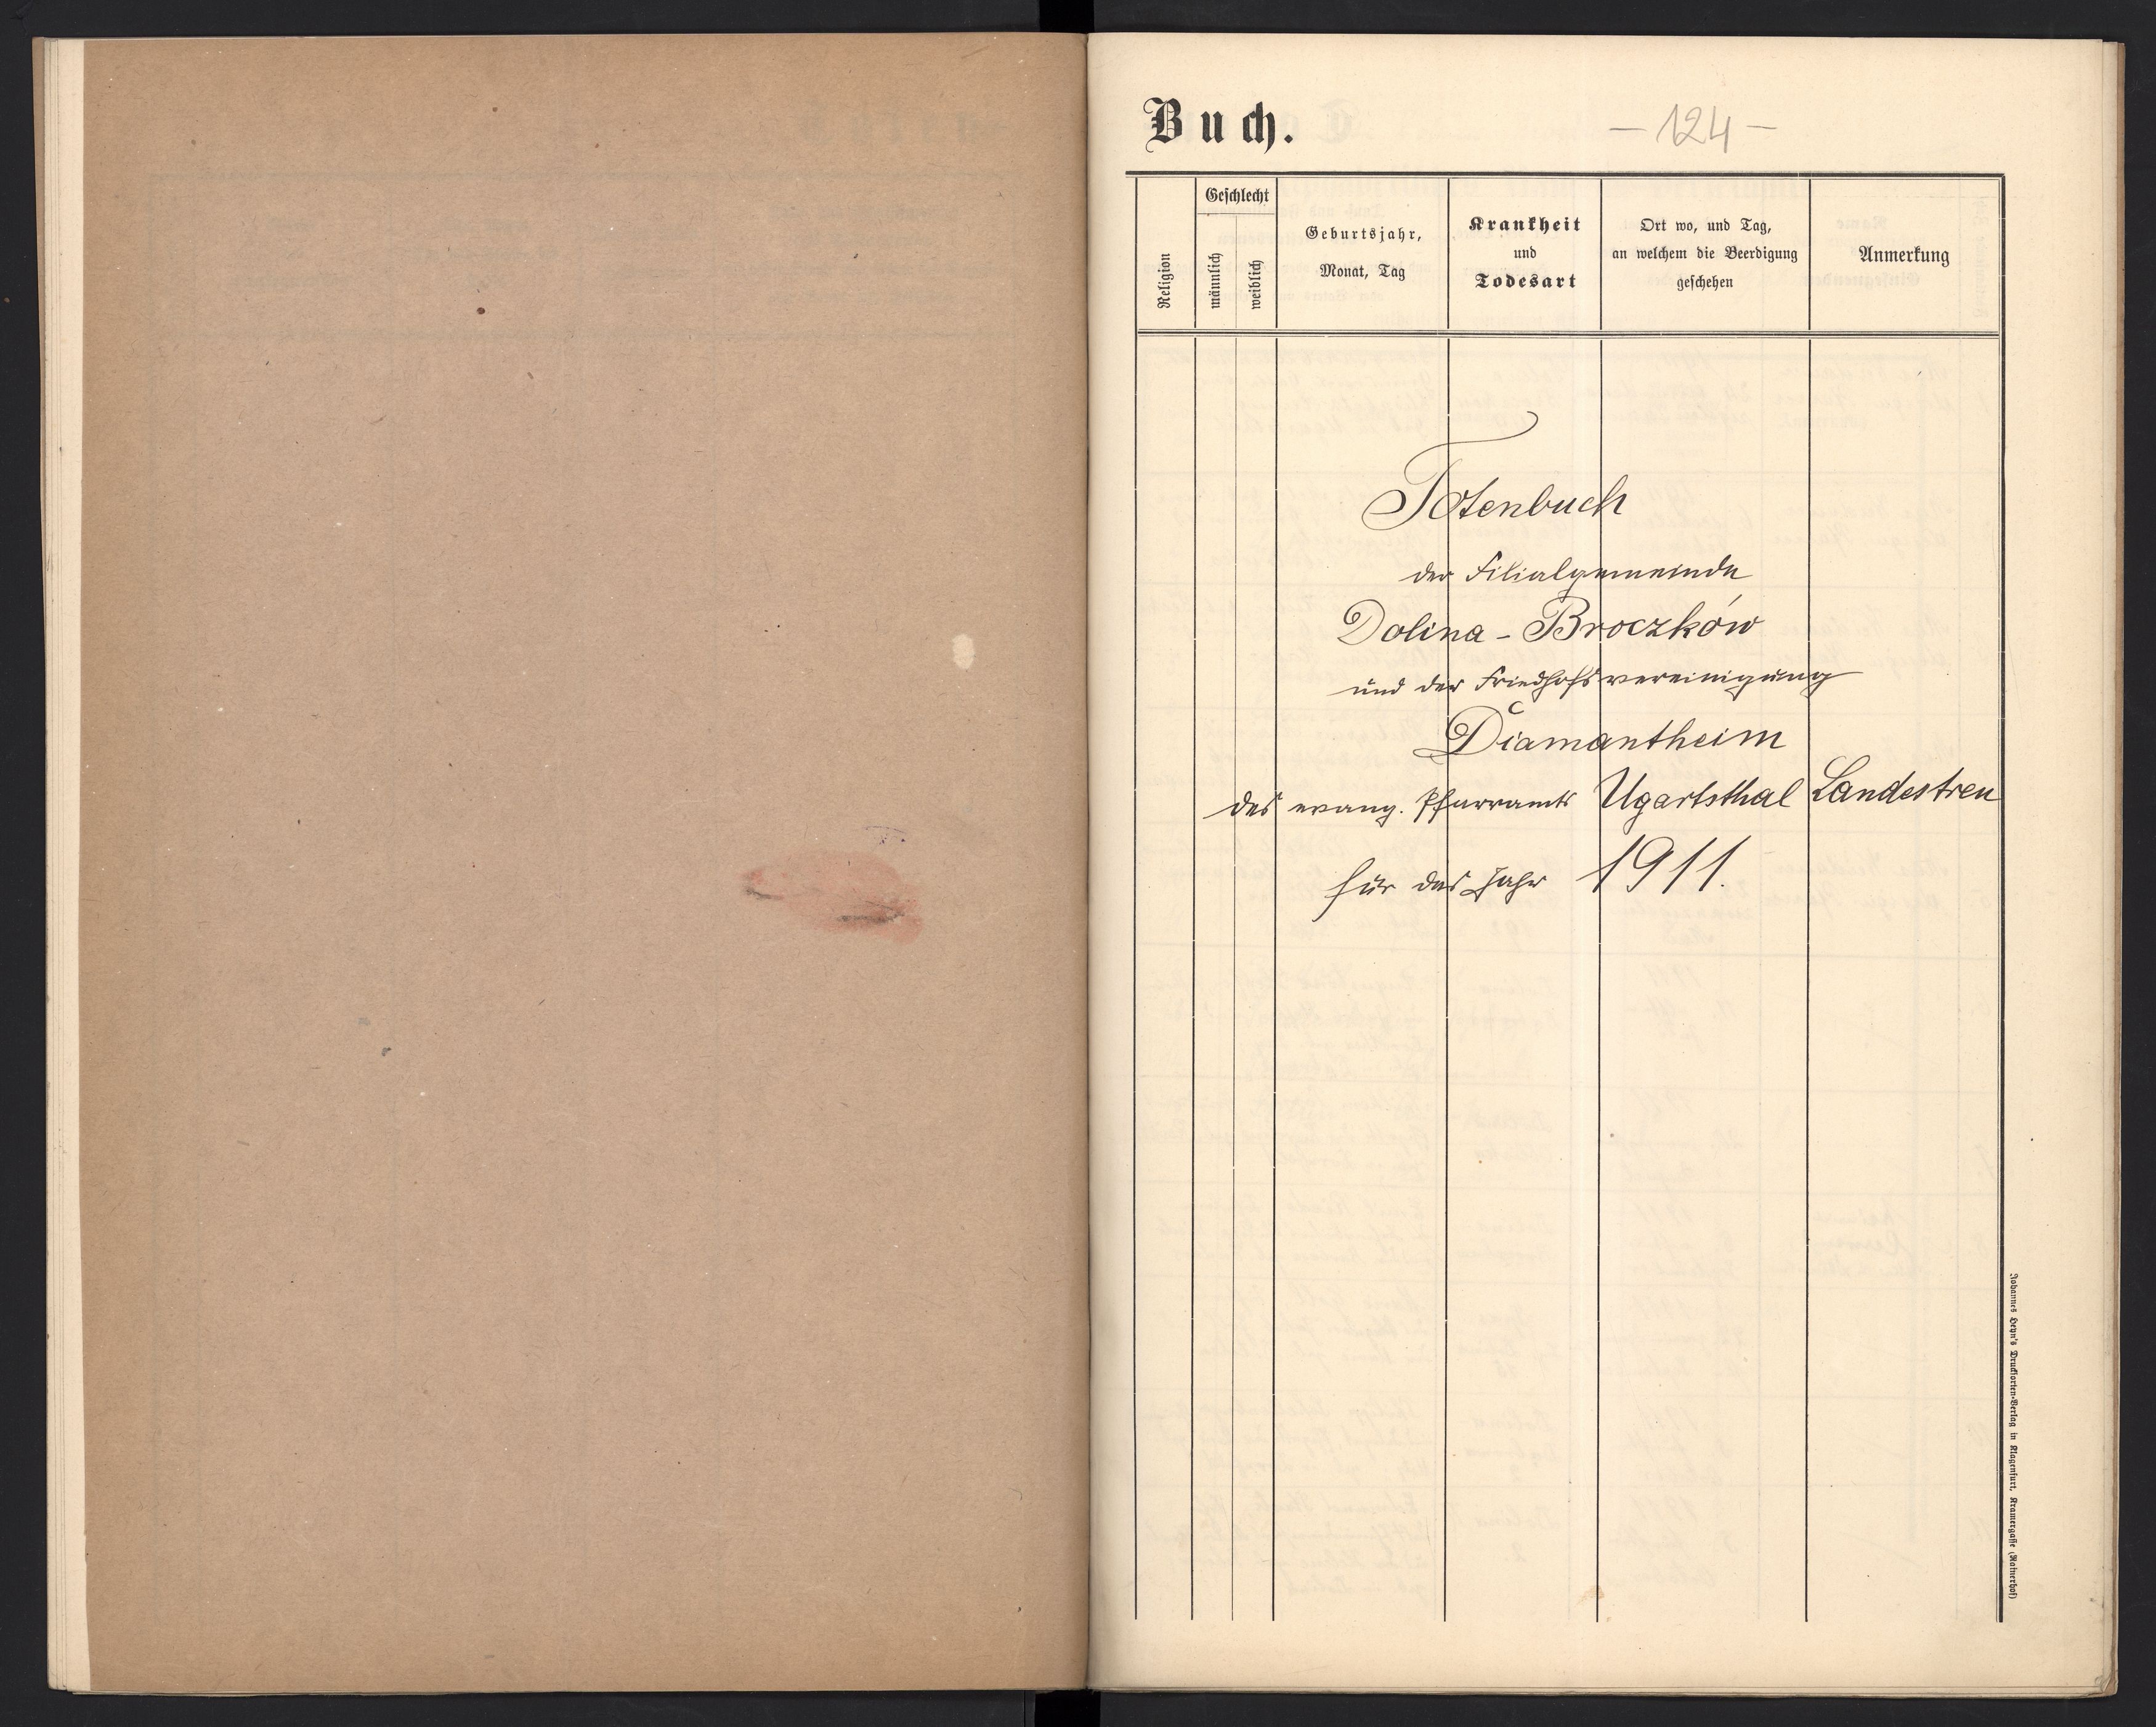 Buch.
— 124 —
Religion
Geschlecht
männlich
weiblich
Geburtsjahr,
Monat, Tag
Krankheit
und
Todesart
Ort wo, und Tag,
an welchem die Beerdigung
geschehen
Anmerkung
Totenbuch
der Filialgemeinde
Dolina - Broczków
und der Friedhofsvereinigung
Diamantheim
des evang. Pfarramts Ugartsthal Landestreu
für das Jahr 1911.
Johannes Heyn's Drucksorten-Verlag in Klagenfurt, Kramergasse (Rainerhof)